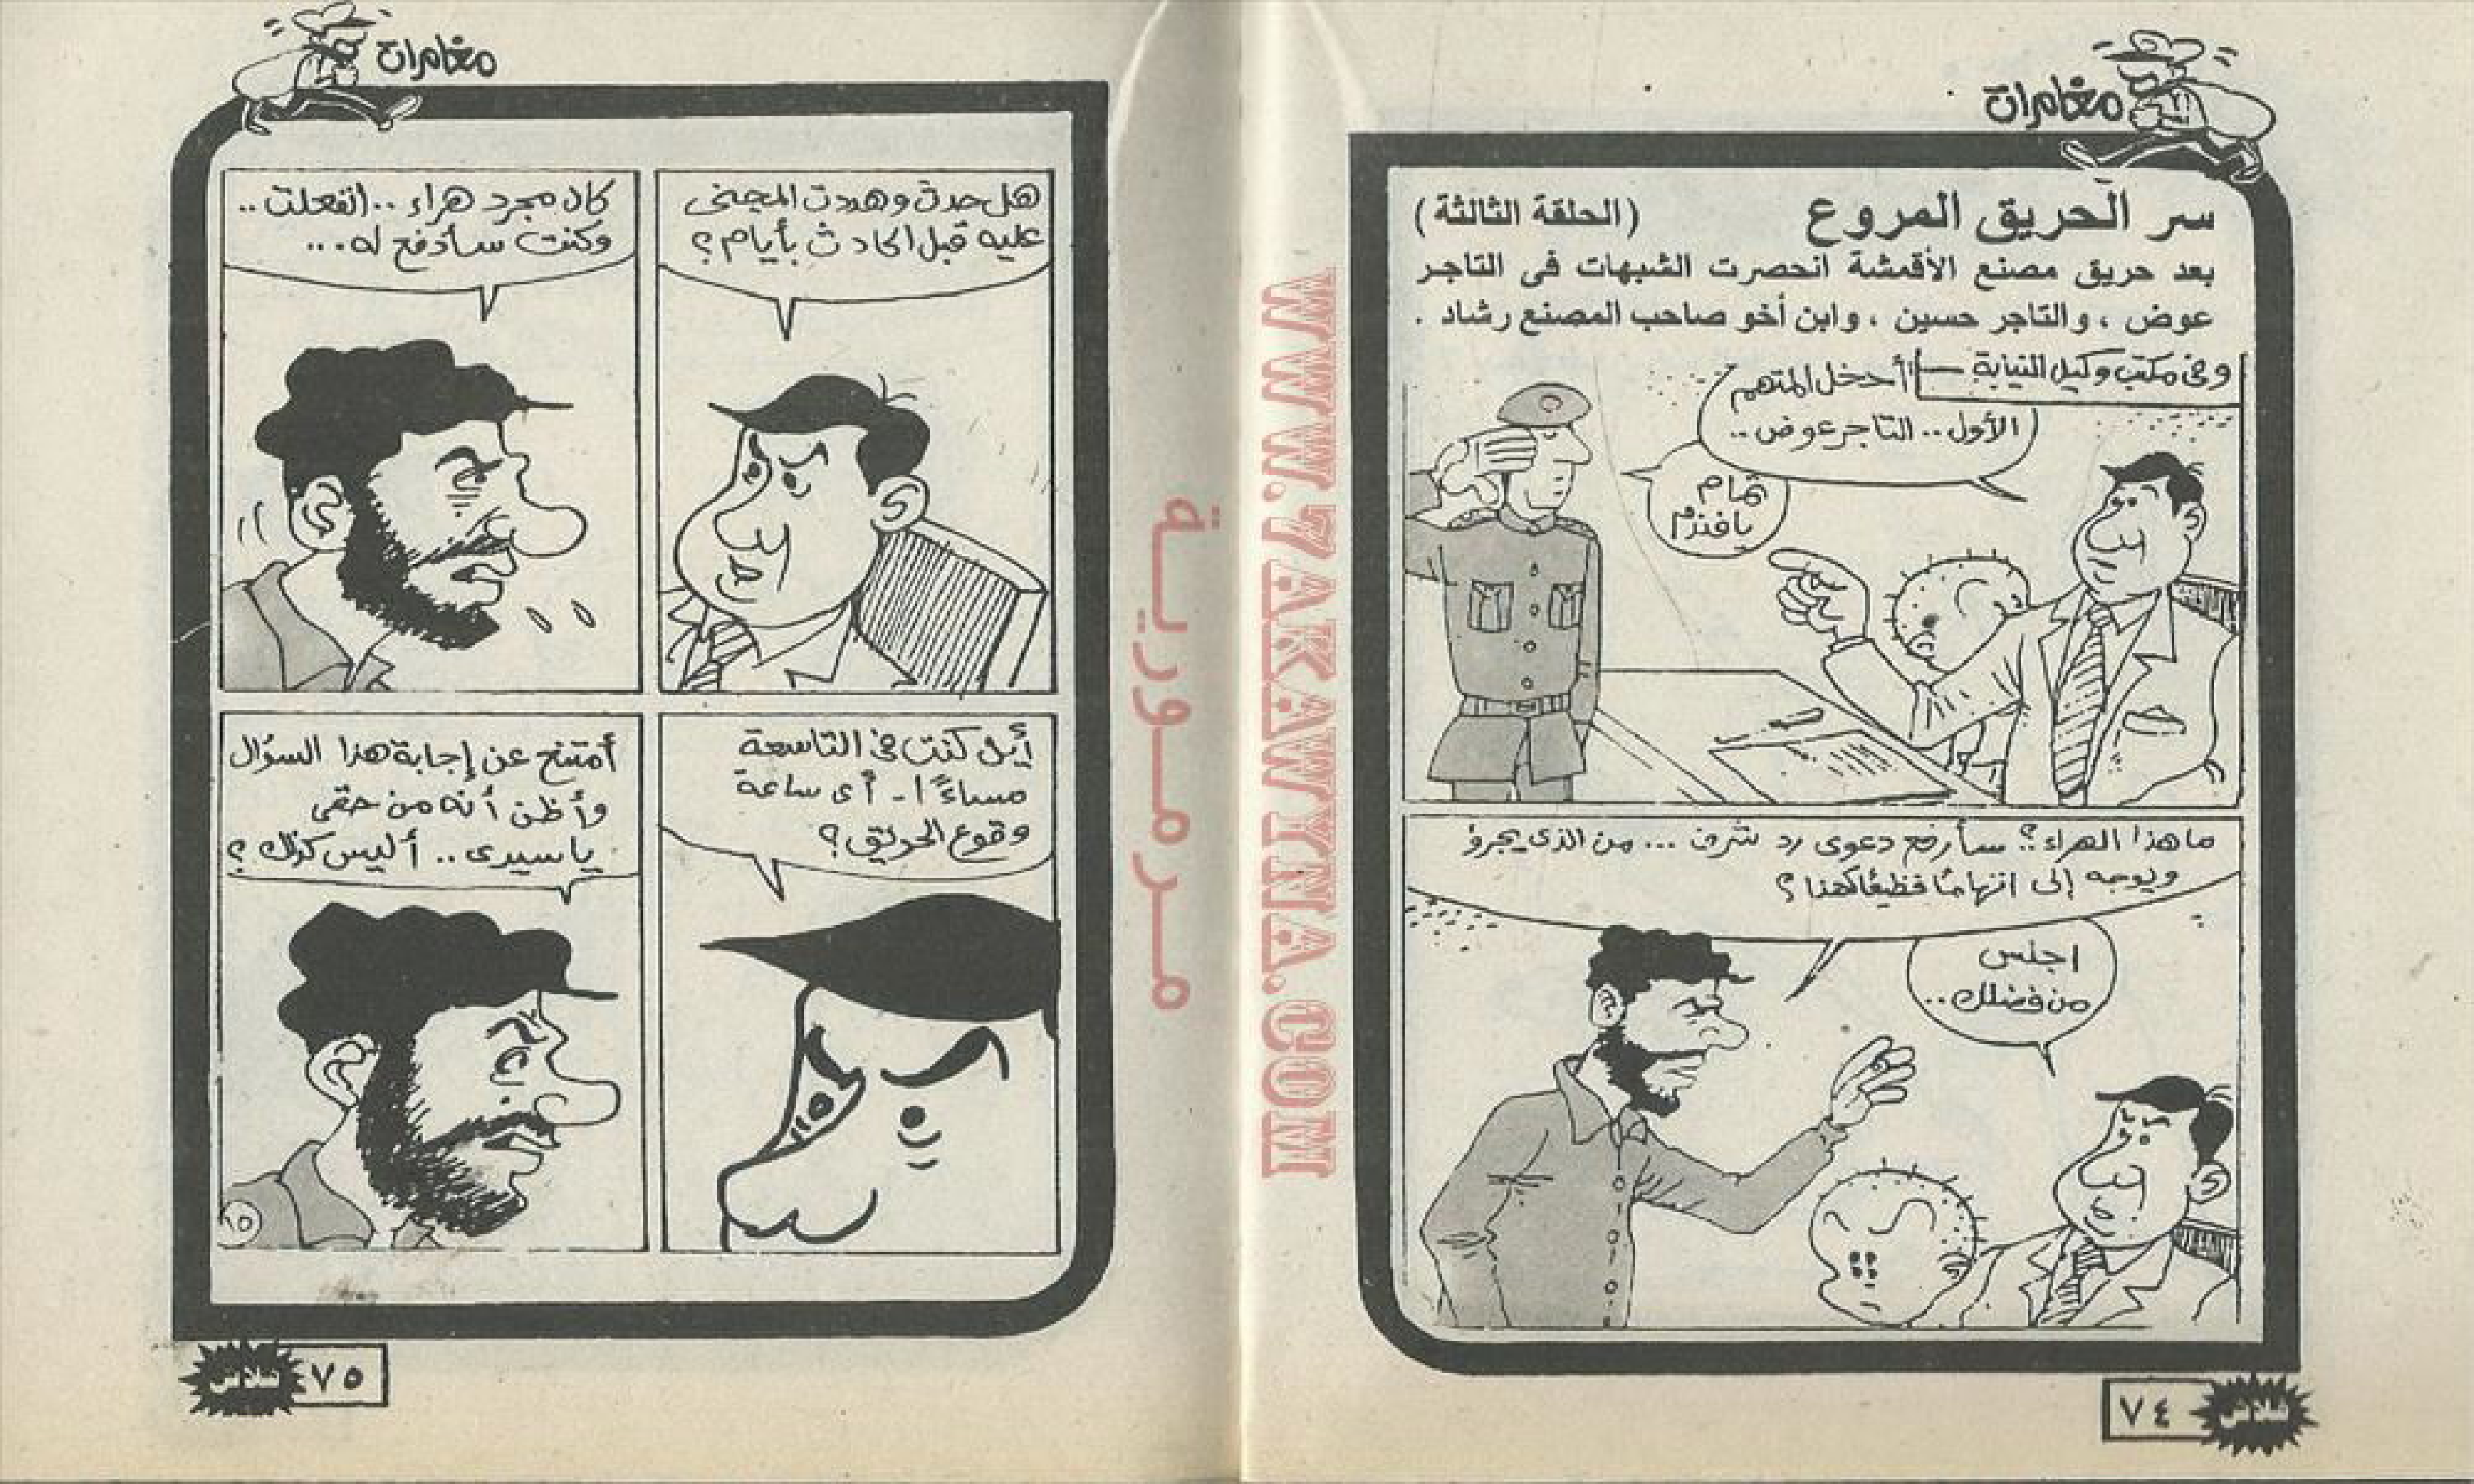 مغامرات
سر الحريق المروع (الحلقة الثالثة)
بعد حريق مصنع الأقمشة انحصرت الشبهات فى التاجر
عوض ، والتاجر حسين ، وابن أخو صاحب المصنع رشاد .
وفى مكتب وكيل النيابة
أدخل المتهم
الأول .. التاجر عوض ..
تمام
يا فندم
ما هذا الهراء ؟ سأرفع دعوى رد شرف ... من الذى يجرؤ
ويوجه إلى اتهامًا فظيعًا كهذا ؟
اجلس
من فضلك ..
٧٤
فلاش
WWW.7AKAWINA.COM
مرمورية
مغامرات
هل حدث وهددت المجنى
عليه قبل الحادث بأيام ؟
كان مجرد هراء .. انفعلت ..
وكنت سأدفع له ...
أين كنت فى التاسعة
مساءً ا - أى ساعة
وقوع الحريق ؟
أمتنع عن إجابة هذا السؤال
وأظن أنه من حقى
يا سيدى .. أليس كذلك ؟
١٥
٧٥
فلاش